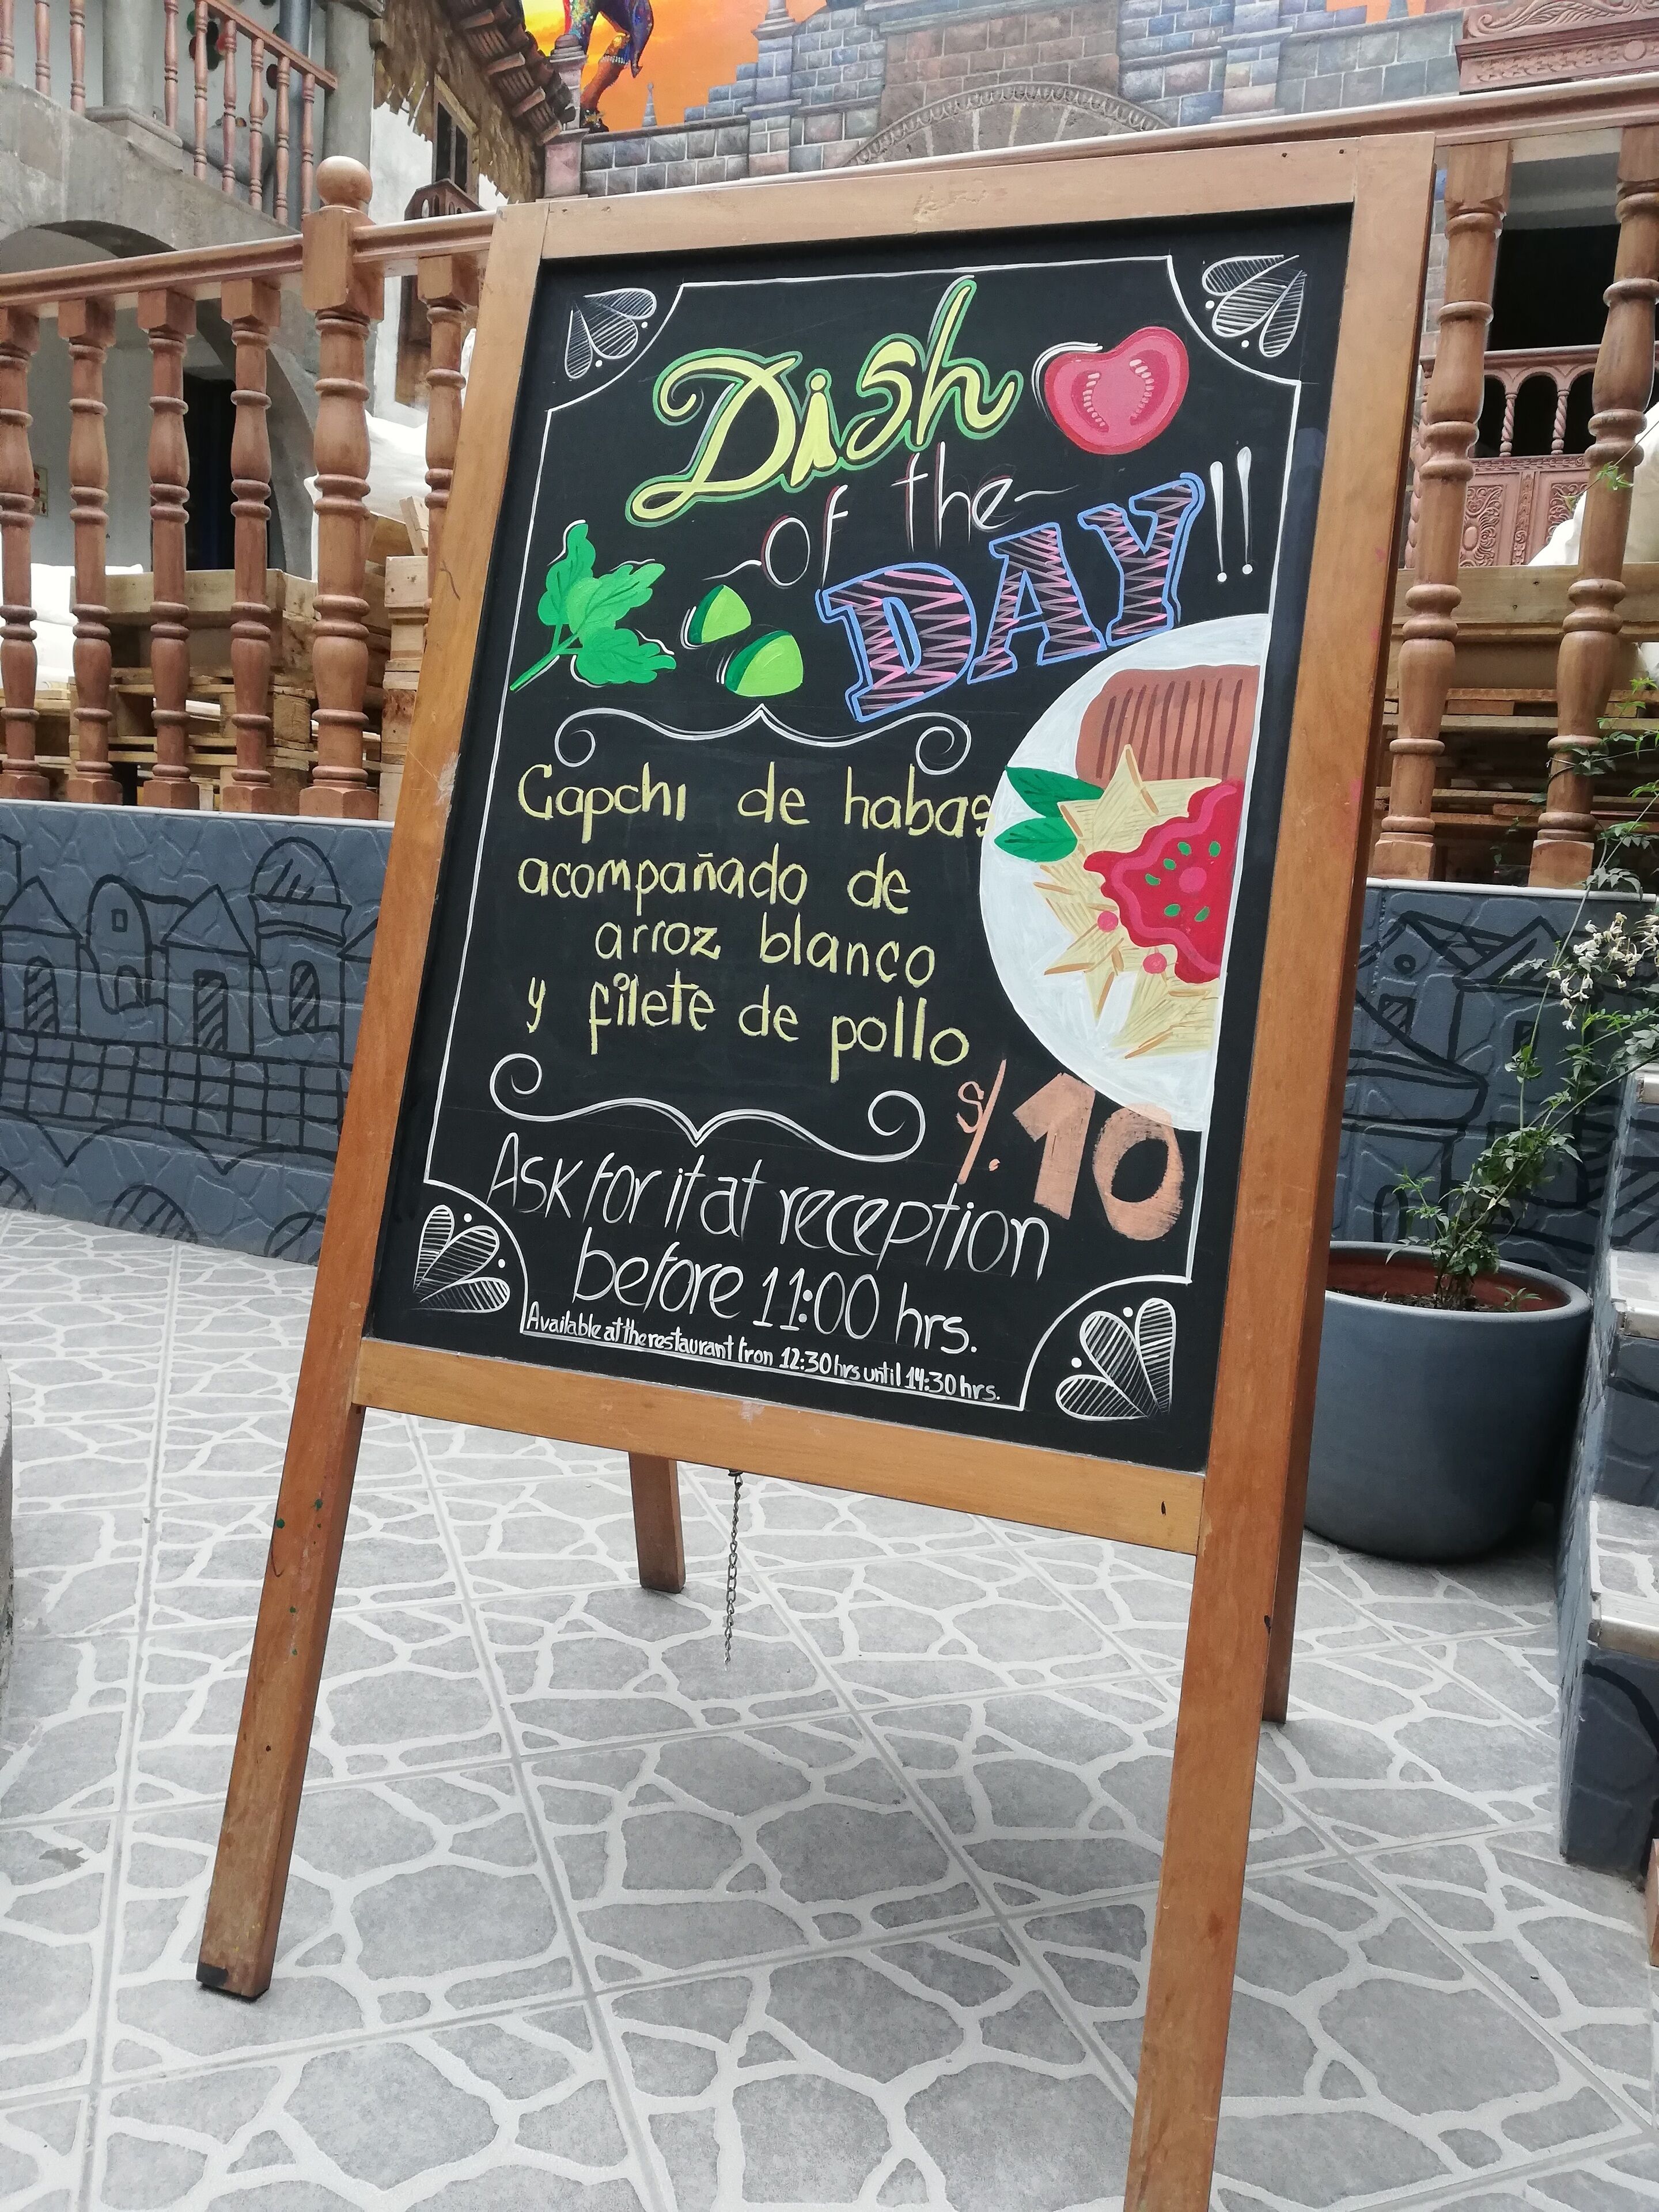 Dish
of the
DAY!!
Capchi de habas
acompañado de
arroz blanco
y filete de pollo
s/. 10
Ask for it at reception
before 11:00 hrs.
Available at the restaurant fron 12:30 hrs until 14:30 hrs.